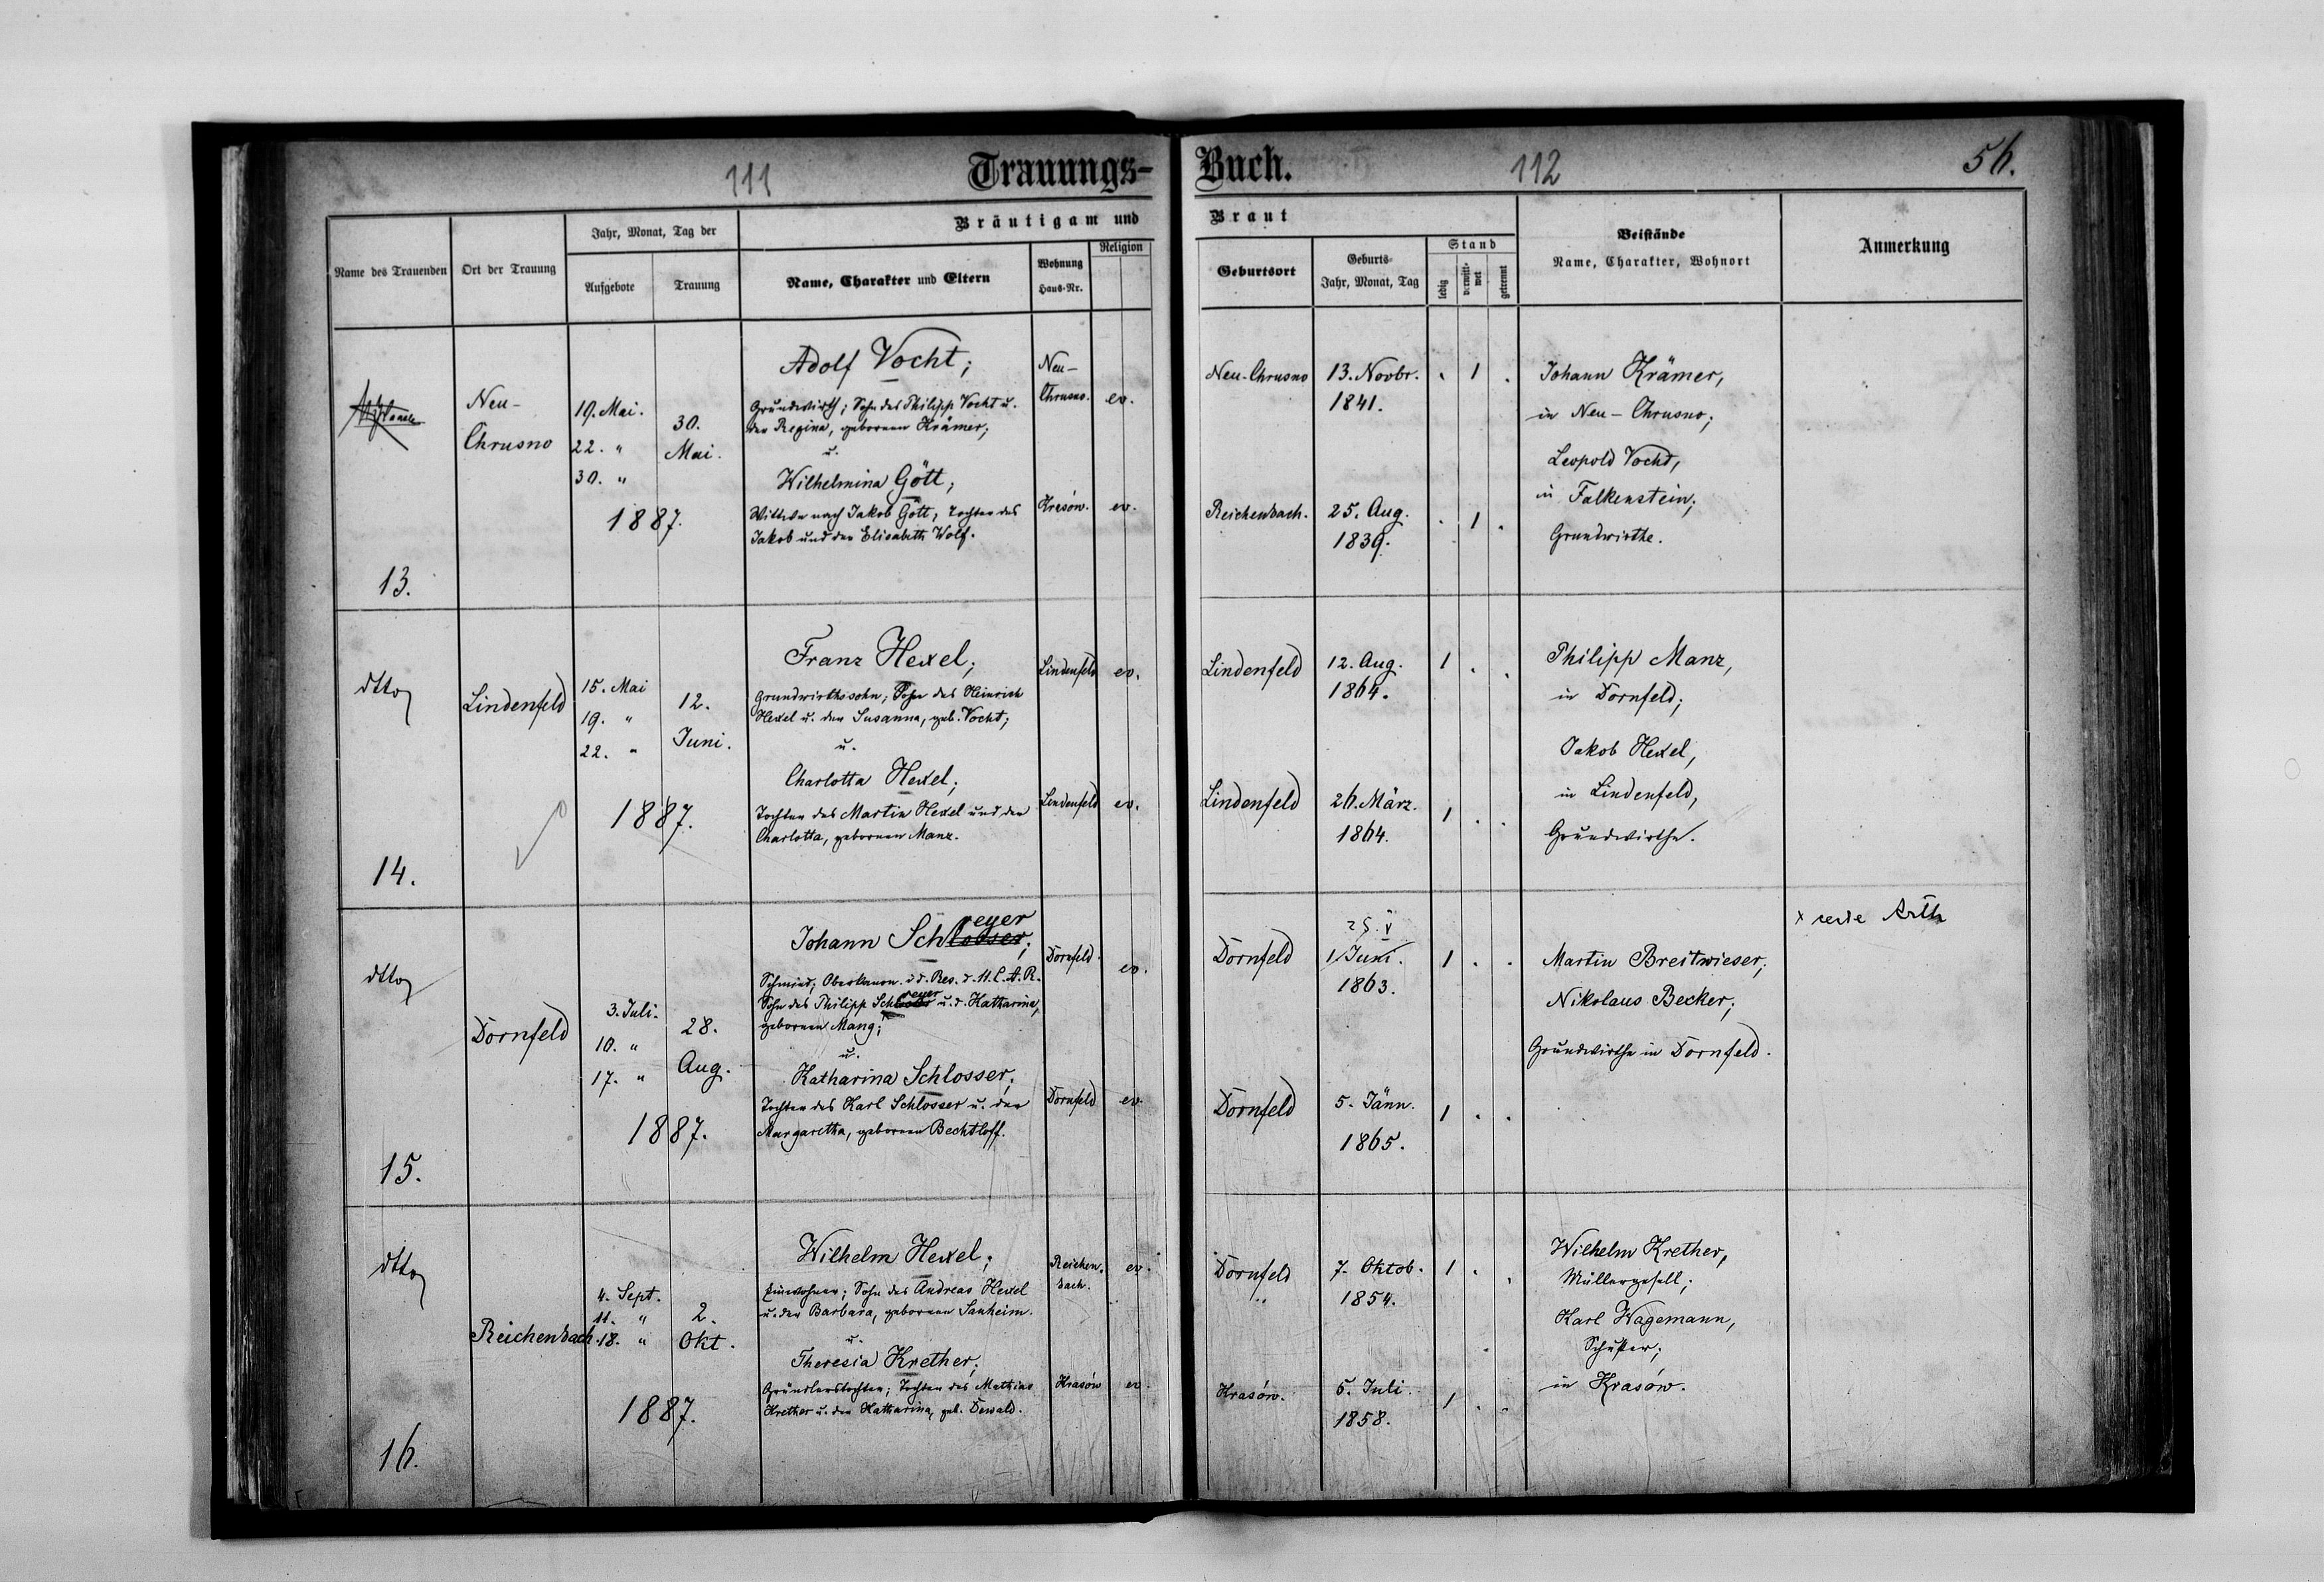 111
Trauungs-
Name des Trauenden
Ort der Trauung
Jahr, Monat, Tag der
Aufgebote
Trauung
Bräutigam und
Name, Charakter und Eltern
Wohnung
Haus-Nr.
Religion
Neu-
Chrusno
19. Mai.
22. "
30. "
30.
Mai.
1887.
Adolf Vocht;
Grundwirth; Sohn des Philipp Vocht u.
der Regina, geboren Krämer;
u.
Wilhelmina Gött;
Wittwe nach Jakob Gött; Tochter des
Jakob und der Elisabeth Wolf.
Neu-
Chrusno.
ev.
Krasów.
ev.
13.
dtto
Lindenfeld
15. Mai
19. "
22. "
12.
Juni.
1887.
Franz Hexel;
Grundwirthssohn; Sohn des Heinrich
Hexel u. der Susanna, geb. Vocht;
u.
Charlotta Hexel;
Tochter des Martin Hexel und der
Charlotta, geboren Manz.
Lindenfeld
ev.
Lindenfeld
ev.
14.
dtto
Dornfeld
3. Juli.
10. "
17. "
28.
Aug.
1887.
reyer
Johann Schlosser;
Schmied; Oberkanon. i. d. Res. d. 11. C. A. R.
reyer
Sohn des Philipp Schlosser u. d. Katharina,
geboren Mang;
u.
Katharina Schlosser;
Tochter des Karl Schlosser u. der
Margaretha, geboren Bechtloff.
Dornfeld.
ev.
Dornfeld
ev.
15.
dtto
Reichenbach
4. Sept.
11. "
18. "
2.
Okt.
1887.
Wilhelm Hexel;
Einwohner; Sohn des Andreas Hexel
u. der Barbara, geboren Sauheim.
u.
Theresia Krether;
Gründlerstochter; Tochter des Mathias
Krether u. der Katharina, geb. Dewald.
Reichen-
bach.
ev.
Krasów
ev.
16.
Buch.
112
56.
Braut
Geburtsort
Geburts-
Jahr, Monat, Tag
Stand
ledig
verwitt-
wet
getrennt
Beistände
Name, Charakter, Wohnort
Anmerkung
Neu-Chrusno
13. Novbr.
1841.
. 1 .
Johann Krämer,
in Neu-Chrusno;
Leopold Vocht,
in Falkenstein;
Grundwirthe.
Reichenbach.
25. Aug.
1839.
. 1 .
Lindenfeld
12. Aug.
1864.
1 . .
Philipp Manz,
in Dornfeld;
Jakob Hexel,
in Lindenfeld,
Grundwirthe.
Lindenfeld
26. März.
1864.
1 . .
Dornfeld
25. V
1 Juni.
1863.
1 . .
Martin Breitwieser;
Nikolaus Becker;
Grundwirthe in Dornfeld.
Dornfeld
5. Jänn.
1865.
1 . .
Dornfeld
7. Oktob.
1854.
1 . .
Wilhelm Krether,
Müllergesell;
Karl Wagemann,
Schuster;
in Krasów.
Krasów.
5. Juli.
1858.
1 . .